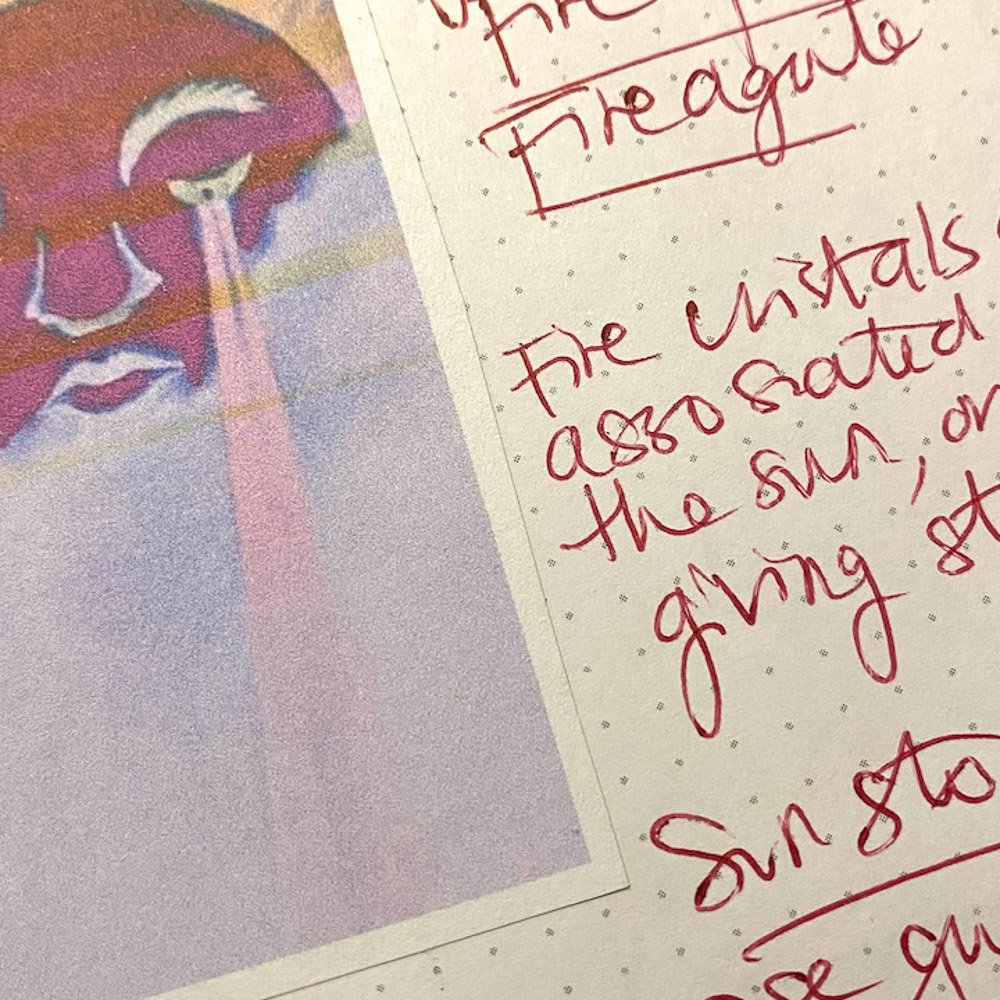 Fire
Fire agate
Fire cristals
assosiated
the sun, on
giving st
Sun sto